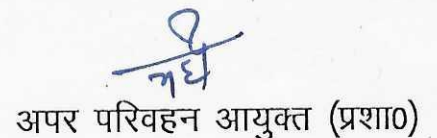 अपर परिवहन आयुक्त (प्रशा0)